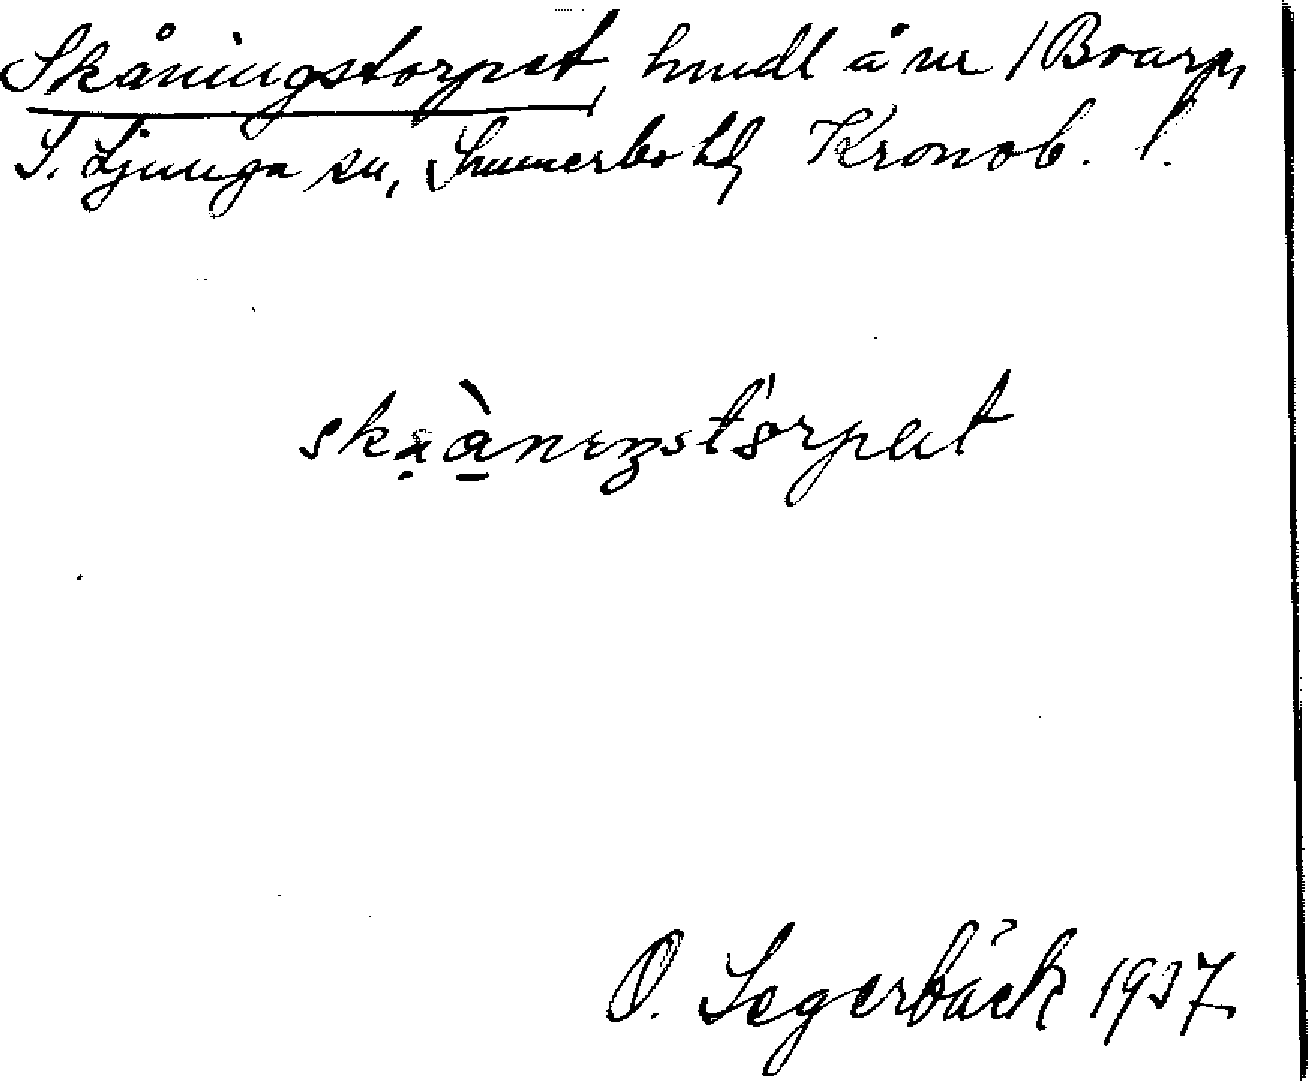 Skåningstorpet, hmdl å nr 1 Boarp,
S. Ljunga sn, Sunnerbo hd, Kronob. l.
skaànıŋstorpat
O. Segerbäck 1937